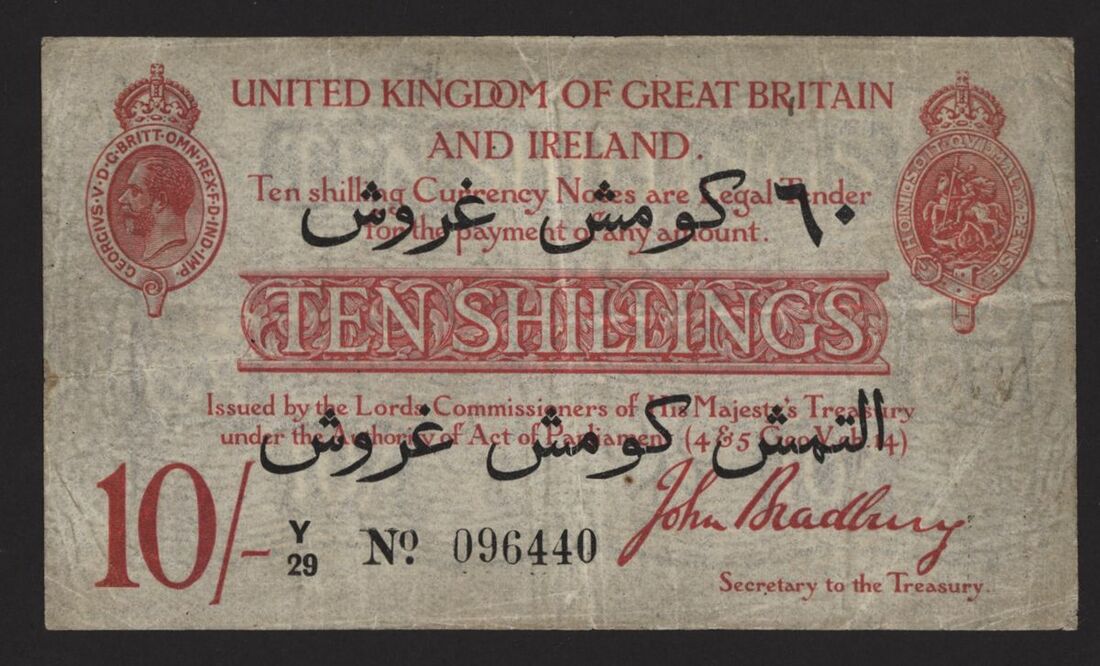 UNITED KINGDOM OF GREAT BRITAIN
AND IRELAND.
GEORGIVS·V·D·G·BRITT·OMN·REX·F·D·IND·IMP·
HONI·SOIT·QVI·MAL·Y·PENSE
Ten shilling Currency Notes are Legal Tender
٦٠ كومش غروش
for the payment of any amount.
TEN SHILLINGS
Issued by the Lords Commissioners of His Majesty's Treasury
التمش كومش غروش
under the Authority of Act of Parliament (4 & 5 Geo.V.ch.14)
10/-
Y
29
Nº 096440
John Bradbury
Secretary to the Treasury.